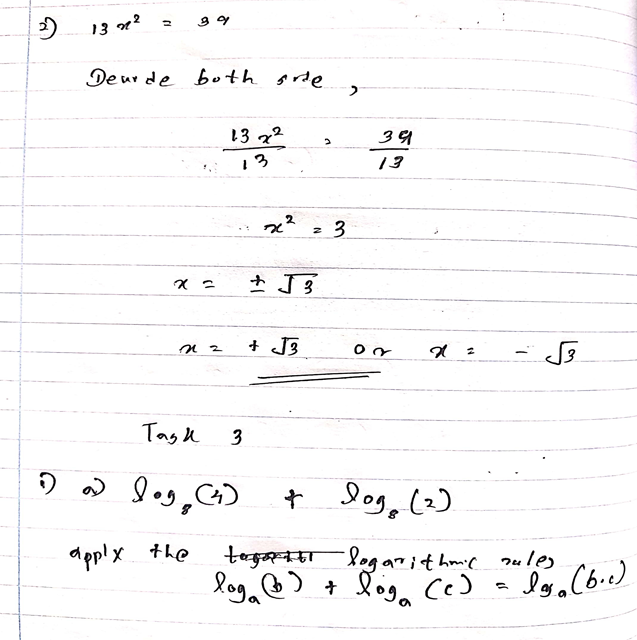 2) 13x² = 39
Deuide both side,
13x²/13 = 39/13
∴ x² = 3
x = ± √3
x = + √3 or x = - √3
Task 3
i) a) log₈(4) + log₈(2)
apply the logarithmic rules
logₐ(b) + logₐ(c) = logₐ(b.c)